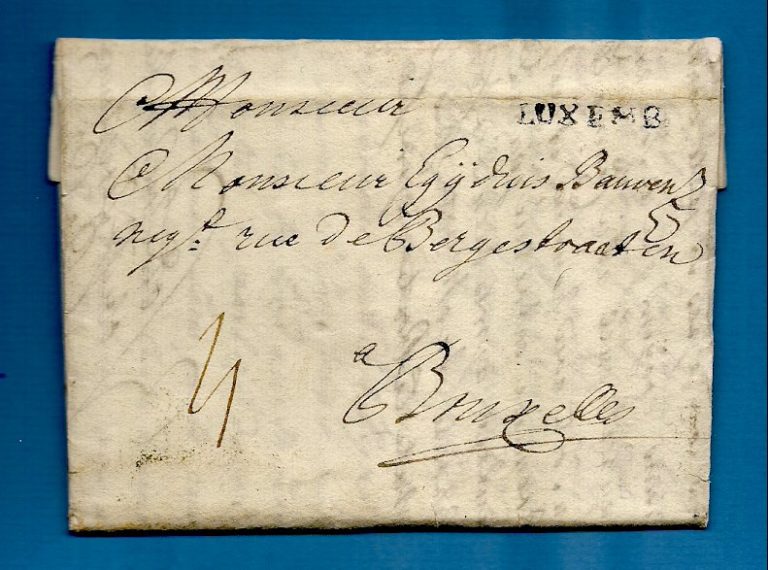 Monsieur
LUXEMB.
Monsieur Egÿduis Bauwens
negt. rue de Bergestraaten
4
a
Bruxelles